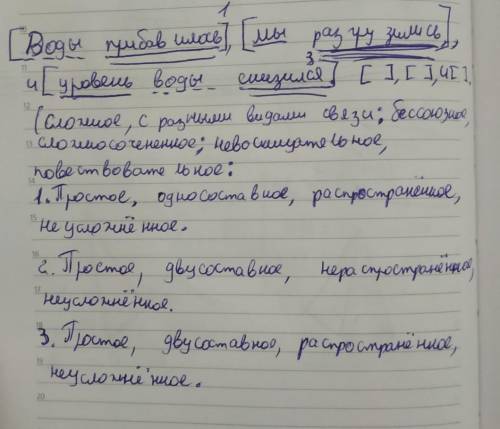 1
[Воды прибавилось], [мы разгрузились],
3
и [уровень воды снизился] [ ], [ ], и [ ].
(сложное, с разными видами связи; бессоюзное,
сложносочененное; невосклицательное,
повествовательное:
1. Простое, односоставное, распространённое,
неусложнённое.
2. Простое, двусоставное, нераспространённое,
неусложнённое.
3. Простое, двусоставное, распространённое,
неусложнённое.